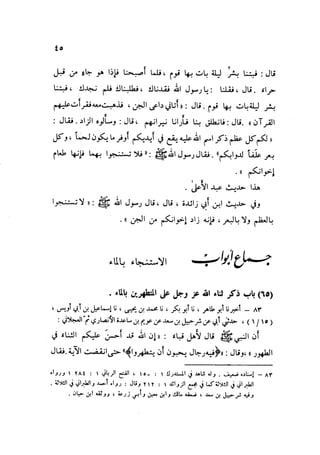 ٤٥
قال : فبتنا بشر ليلة بات بها قوم ، فلما أصبحنا فإذا هو جاء من قبل
حراء . قال ، فقلنا : يا رسول الله فقدناك ، فطلبناك فلم نجدك ، فبتنا
بشر ليلة بات بها قوم . قال : « أتاني داعي الجن ، فذهبت معه فقرأت عليهم
القرآن » . قال : فانطلق بنا فأرانا نيرانهم ، قال : وسألوه الزاد . فقال :
« لكم كل عظم ذكر اسم الله عليه يقع في أيديكم أوفر ما يكون لحماً ، وكل
بعر علفاً لدوابكم » . فقال رسول الله ﷺ : « فلا تستنجوا بهما فإنها طعام
إخوانكم » .
هذا حديث عبد الأعلى .
وفي حديث ابن أبي زائدة ، قال ، قال رسول الله ﷺ : « لا تستنجوا
بالعظم ولا بالبعر ، فإنه زاد إخوانكم من الجن » .
جماع أبواب الاستنجاء بالماء
(٦٥) باب ذكر ثناء الله عز وجل على المتطهرين بالماء .
٨٣ – أخبرنا أبو طاهر ، نا أبو بكر ، نا محمد بن يحيى ، نا إسماعيل بن أبي أويس ،
(١/١٥) ، حدثني أبي عن شرحبيل بن سعد عن عويم بن ساعدة الأنصاري ثم العجلاني :
أن النبي ﷺ قال لأهل قباء : « إن الله قد أحسن عليكم الثناء في
الطهور » ، وقال : « فيه رجال يحبون أن يتطهروا » حتى انقضت الآية . فقال
٨٣ – إسناده ضعيف . وله شاهد في المستدرك ١ : ١٥٠ ، الفتح الرباني ١ : ٢٨٤ ورواه
الطبراني في الثلاثة كما في مجمع الزوائد ١ : ٢١٢ وقال : رواه أحمد والطبراني في الثلاثة .
وفيه شرحبيل بن سعد ، ضعفه مالك وابن معين وأبي زرعة ، ووثقه ابن حبان .